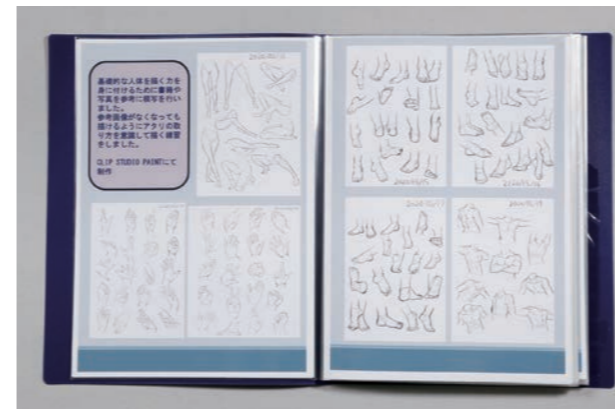 基礎的な人体を描く力を
身に付けるために書籍や
写真を参考に模写を行い
ました。
参考画像がなくなっても
描けるようにアタリの取
り方を意識して描く練習
をしました。
CLIP STUDIO PAINTにて
制作